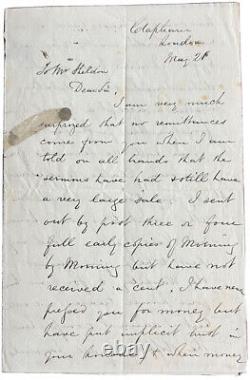 Clapham
London
May 28
To Mr Sheldon
Dear Sir,
I am very much
surprized that no remittances
come from you when I am
told on all hands that the
sermons have had & still have
a very large sale. I sent
out by post three or four
full early copies of Morning
by Morning but have not
received a cent. I have never
pressed you for money but
have put implicit trust in
your honour & when money